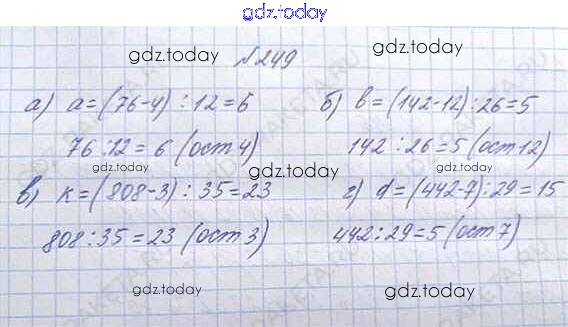 gdz.today
gdz.today №249 gdz.today
а) a=(76-4) : 12=6 б) b=(142-12):26=5
76:12=6 (ост 4) 142:26=5 (ост 12)
gdz.today gdz.today
в) к=(808-3) : 35=23 г) d=(442-7):29=15
808:35=23 (ост 3) 442:29=5 (ост 7)
gdz.today gdz.today